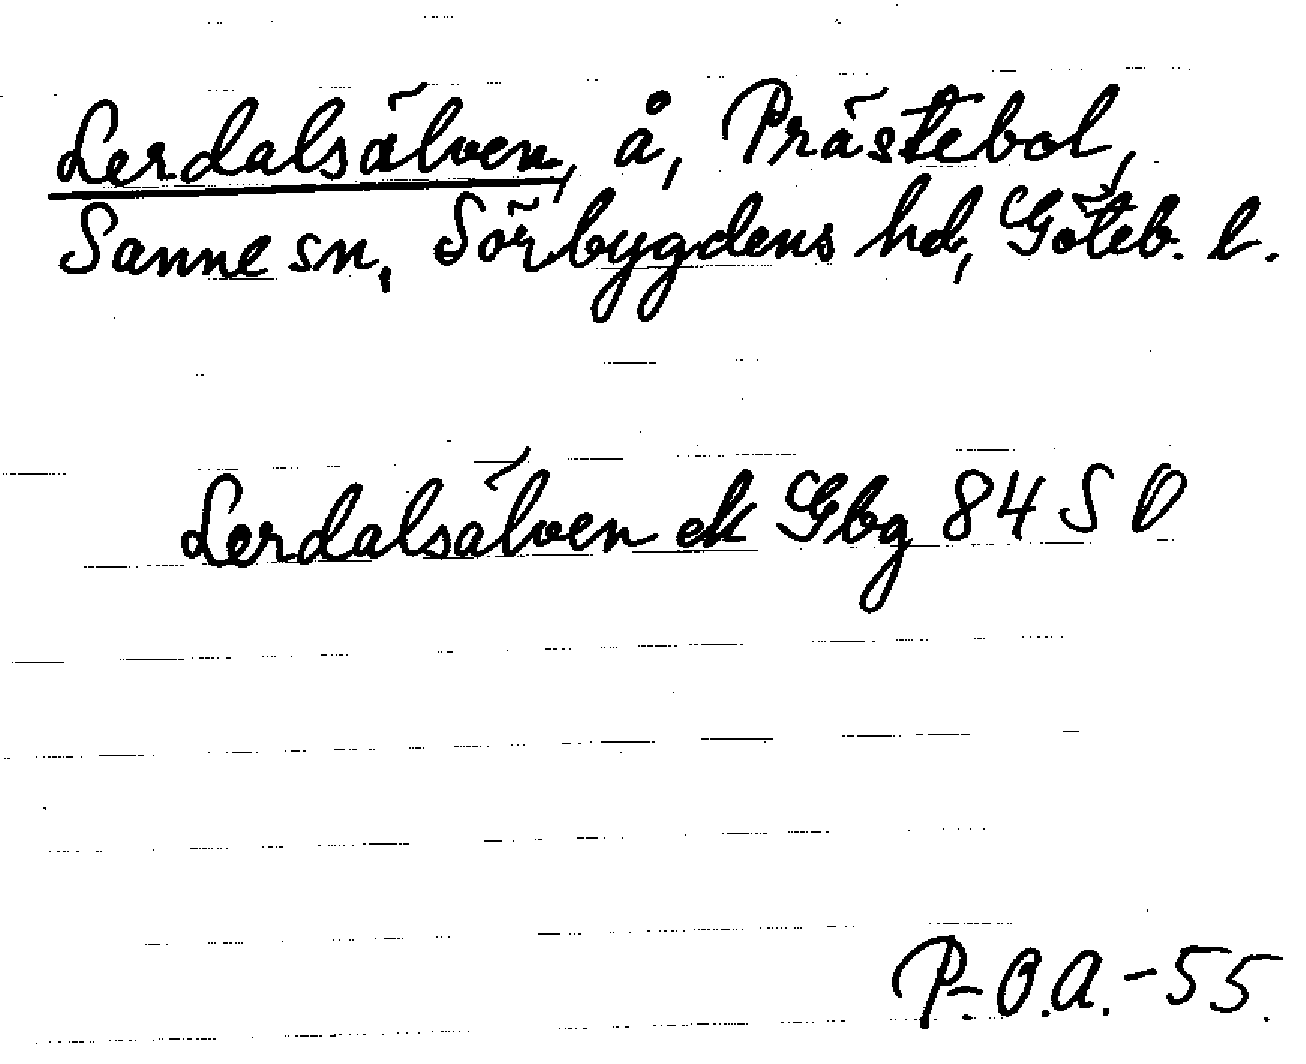 Lerdalsälven, å, Prästebol,
Sanne sn, Sörbygdens hd, Göteb. l.
Lerdalsälven ek Gbg 84 S O
P.-O.A.-55.